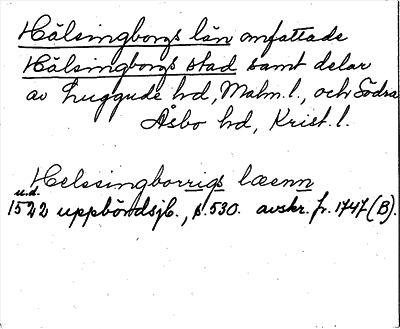 Hälsingborgs län omfattade
Hälsingborgs stad samt delar
av Luggude hd, Malm. l., och Södra
Åsbo hd, Krist. l.
Helssingborrigs læenn
u.d.
1522 uppbördsjb., s. 530. avskr. fr. 1747 (B).